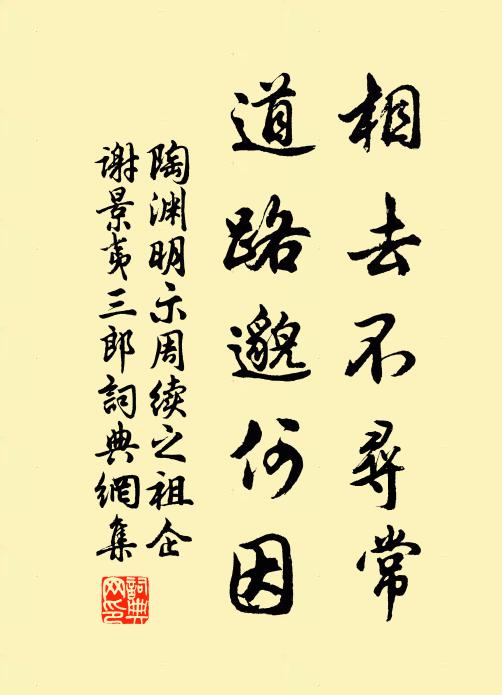 相去不尋常
道路邈何因
陶渊明示周续之祖企
谢景夷三郎詞典網集
詞典
网印